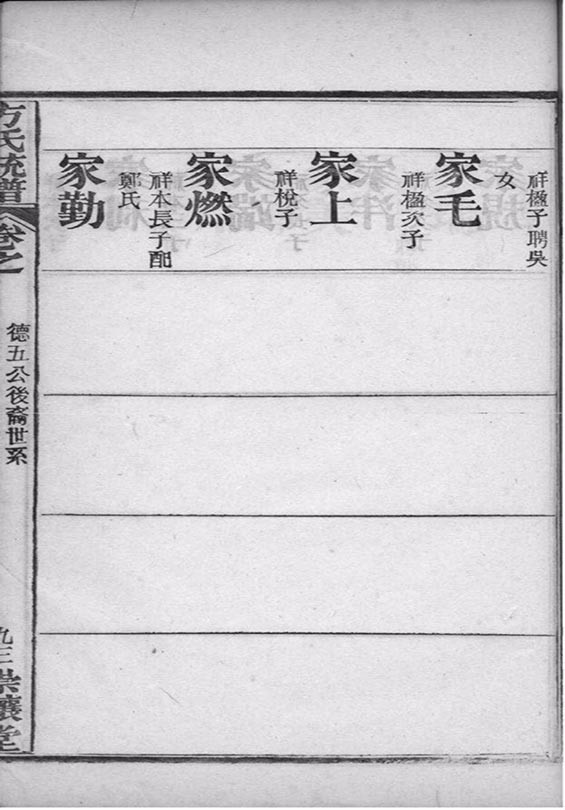 祥楹子聘吳
女
家毛
祥楹次子
家上
祥悅子
家燃
祥本長子配
鄭氏
家勤
方氏統譜
卷之一
德五公後裔世系
九三